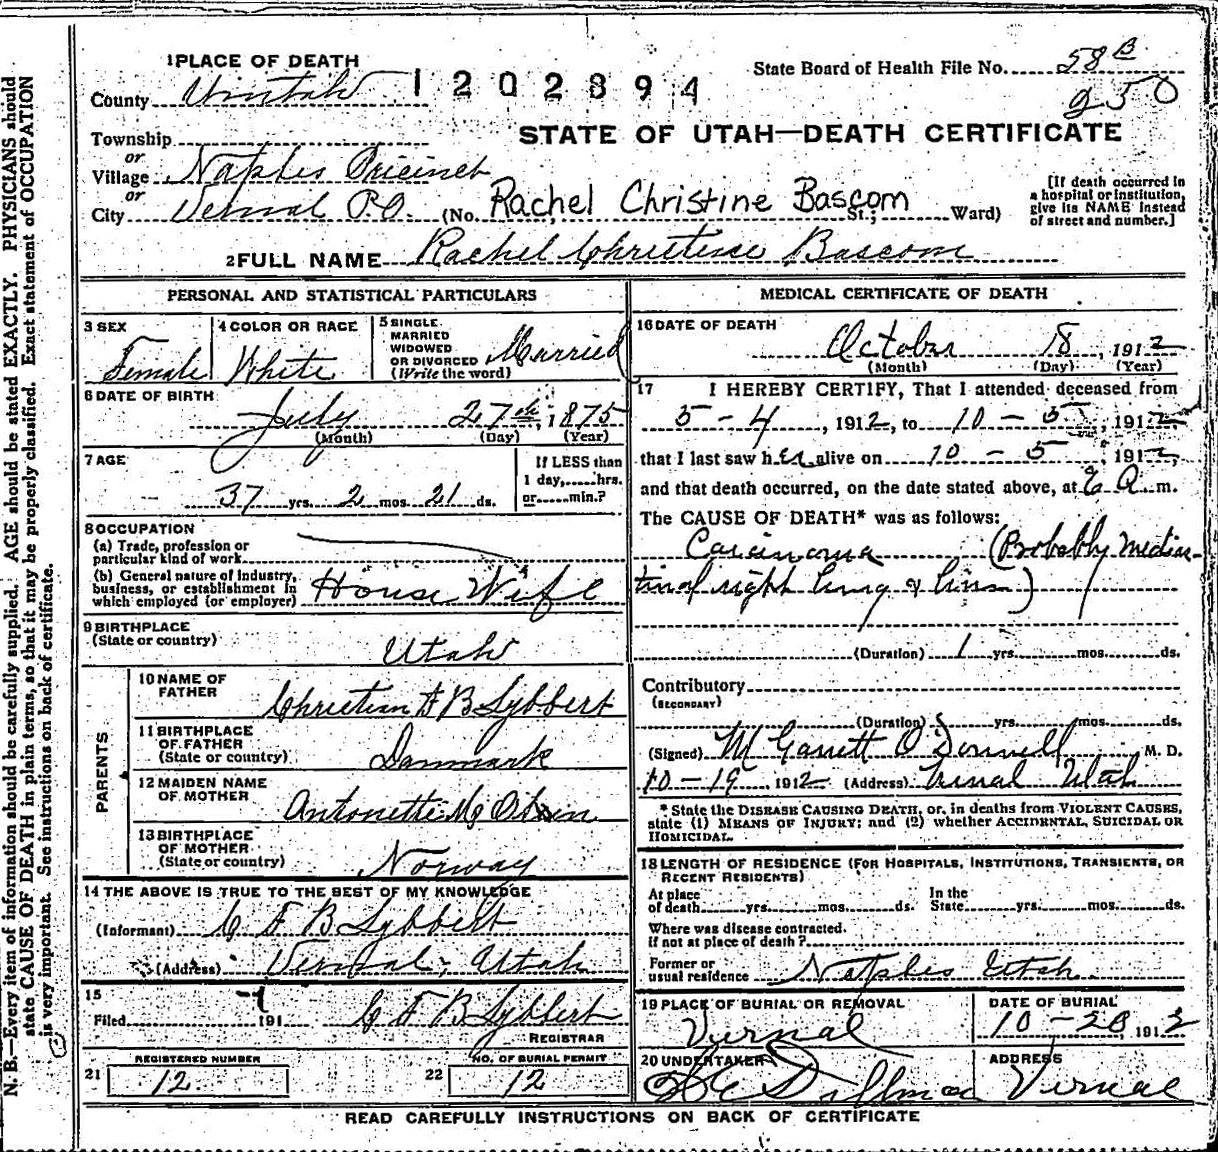 N. B.—Every item of information should be carefully supplied. AGE should be stated EXACTLY. PHYSICIANS should
state CAUSE OF DEATH in plain terms, so that it may be properly classified. Exact statement of OCCUPATION
is very important. See instructions on back of certificate.
1 PLACE OF DEATH
County Uintah
1202894
State Board of Health File No. 58 B
250
STATE OF UTAH—DEATH CERTIFICATE
Township
or
Village Naples Precinct
or
City Vernal P.O. (No. Rachel Christine Bascom St.; Ward)
[If death occurred in
a hospital or institution,
give its NAME instead
of street and number.]
2 FULL NAME Rachel Christine Bascom
PERSONAL AND STATISTICAL PARTICULARS
3 SEX
Female
4 COLOR OR RACE
White
5 SINGLE
MARRIED
WIDOWED
OR DIVORCED
(Write the word)
Married
6 DATE OF BIRTH
July 27th, 1875
(Month) (Day) (Year)
7 AGE
37 yrs. 2 mos. 21 ds.
If LESS than
1 day, hrs.
or min.?
8 OCCUPATION
(a) Trade, profession or
particular kind of work
(b) General nature of industry,
business, or establishment in
which employed (or employer)
House Wife
9 BIRTHPLACE
(State or country)
Utah
PARENTS
10 NAME OF
FATHER
Christian F B Lybbert
11 BIRTHPLACE
OF FATHER
(State or country)
Danmark
12 MAIDEN NAME
OF MOTHER
Antonette M Olsin
13 BIRTHPLACE
OF MOTHER
(State or country)
Norway
14 THE ABOVE IS TRUE TO THE BEST OF MY KNOWLEDGE
(Informant) C F B Lybbert
(Address) Vernal, Utah
15
Filed 191
C F B Lybbert
REGISTRAR
21 REGISTERED NUMBER
12
22 NO. OF BURIAL PERMIT
12
MEDICAL CERTIFICATE OF DEATH
16 DATE OF DEATH
October 18, 1912
(Month) (Day) (Year)
17 I HEREBY CERTIFY, That I attended deceased from
5 - 4, 1912, to 10 - 5, 1912
that I last saw her alive on 10 - 5, 1912,
and that death occurred, on the date stated above, at 6 A. m.
The CAUSE OF DEATH* was as follows:
Carcinoma (Probably medias-
tinal right lung &
(Duration) 1 yrs. mos. ds.
Contributory
(SECONDARY)
(Duration) yrs. mos. ds.
(Signed) M Garrett O'Donnell M. D.
10-19, 1912 (Address) Vernal Utah
* State the DISEASE CAUSING DEATH, or, in deaths from VIOLENT CAUSES,
state (1) MEANS OF INJURY; and (2) whether ACCIDENTAL, SUICIDAL OR
HOMICIDAL.
18 LENGTH OF RESIDENCE (FOR HOSPITALS, INSTITUTIONS, TRANSIENTS, OR
RECENT RESIDENTS)
At place
of death yrs. mos. ds.
In the
State yrs. mos. ds.
Where was disease contracted.
If not at place of death?
Former or
usual residence Naples Utah
19 PLACE OF BURIAL OR REMOVAL
Vernal
DATE OF BURIAL
10-20, 1912
20 UNDERTAKER
Dillman
ADDRESS
Vernal
READ CAREFULLY INSTRUCTIONS ON BACK OF CERTIFICATE